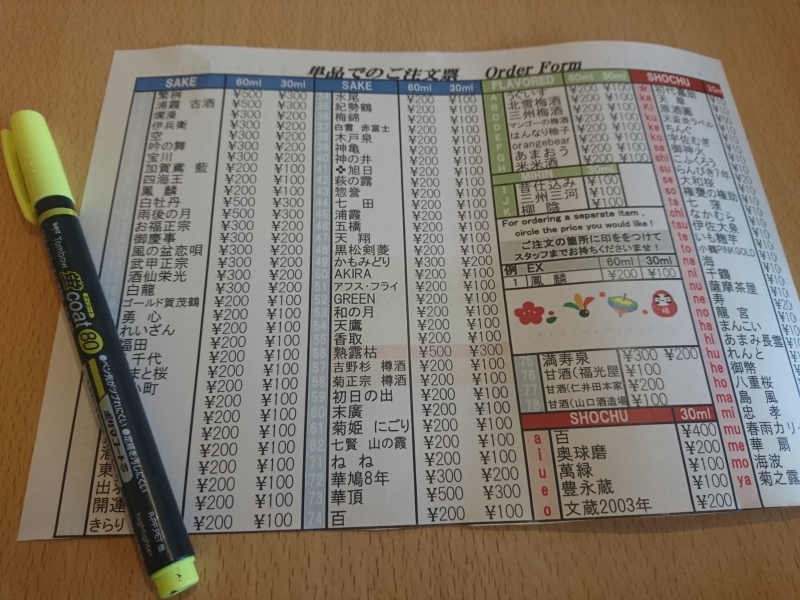 単品でのご注文票 Order Form
SAKE 60ml 30ml
¥500 ¥300
浦霞 古酒 ¥500 ¥300
¥200 ¥100
伊兵衛 ¥200 ¥100
空
吟の舞
宝川
加賀鳶 藍 ¥200 ¥100
四海王 ¥200 ¥100
鳳麟
白牡丹 ¥500 ¥300
雨後の月 ¥500 ¥300
お福正宗 ¥200 ¥100
御慶事 ¥200 ¥100
風の盆恋唄 ¥200 ¥100
武甲正宗 ¥200 ¥100
酒仙栄光 ¥200 ¥100
白龍 ¥200 ¥100
ゴールド賀茂鶴 ¥200 ¥100
勇心 ¥200 ¥100
れいざん ¥200 ¥100
福田 ¥200 ¥100
千代 ¥200 ¥100
まと桜 ¥200 ¥100
小町 ¥200 ¥100
¥200 ¥100
¥200 ¥100
¥200 ¥100
¥200 ¥100
¥200 ¥100
開運 ¥200 ¥100
きらり ¥200 ¥100
SAKE 60ml 30ml
水尾 ¥200 ¥100
紀勢鶴 ¥200 ¥100
梅錦 ¥200 ¥100
白雪 赤富士 ¥200 ¥100
木戸泉 ¥200 ¥100
神亀 ¥200 ¥100
神の井 ¥200 ¥100
旭日 ¥200 ¥100
萩の露 ¥200 ¥100
惣誉 ¥200 ¥100
七田 ¥200 ¥100
浦霞 ¥200 ¥100
五橋 ¥200 ¥100
天翔 ¥200 ¥100
黒松剣菱 ¥200 ¥100
かもみどり ¥500 ¥300
50 AKIRA ¥200 ¥100
51 アフス・フライ ¥200 ¥100
52 GREEN ¥200 ¥100
53 和の月 ¥200 ¥100
54 天鷹 ¥200 ¥100
55 香取 ¥200 ¥100
56 熟露枯 ¥500 ¥300
57 吉野杉 樽酒 ¥200 ¥100
58 菊正宗 樽酒 ¥200 ¥100
59 初日の出 ¥200 ¥100
60 末廣 ¥200 ¥100
61 菊姫 にごり ¥200 ¥100
62 七賢 山の霞 ¥200 ¥100
71 ねね ¥200 ¥100
72 華鳩8年 ¥200 ¥100
73 華頂 ¥500 ¥300
74 百 ¥200 ¥100
FLAVORED 60ml 30ml
A うぐいす ¥200 ¥100
B 北雪梅酒 ¥200 ¥100
C 三州梅酒 ¥200 ¥100
D マンゴーの梅酒 ¥200 ¥100
E はんなり柚子 ¥200 ¥100
F orangebear ¥200 ¥100
G あまおう ¥200 ¥100
H 米米酒 ¥200 ¥100
I 昔仕込み ¥100
J 三州三河 ¥100
K 柳蔭 ¥100
For ordering a separate item ,
circle the price you would like!
ご注文の箇所に印をつけて
スタッフまでお持ちくださいませ!
例 EX 60ml 30ml
1 鳳麟 ¥200 ¥100
福
75 満寿泉 ¥300 ¥200
76 甘酒(福光屋) ¥100
77 甘酒(仁井田本家) ¥100
78 甘酒(山口酒造場) ¥100
SHOCHU 30ml
a 百 ¥400
i 奥球磨 ¥200
u 萬緑 ¥100
e 豊永蔵 ¥100
o 文蔵2003年 ¥200
SHOCHU 30m
ka 天草
ki
ku
ke ちんぐ
ko 宇佐むぎ
sa 御神火
shi こふくろう
su らんびき7年
se 大和桜
so 権現の権助
ta 七窪
chi なかむら
tsu 伊佐大泉
te いも麹芋
to 小鶴PINKGOLD
na 海
ni 千鶴
nu 薩摩茶屋
ne 寿
no 龍宮
ha まんこい
hi あまみ長雲
hu れんと
he 御幣
ho 八重桜
ma 島風
mi 忠孝
mu 春雨カリー
me 華扇
mo 海波
ya 菊之露
Tombow 蛍coat 80
ペン先がつぶれにくい
定規を汚しにくい
R.PP.PET.他
highlighter